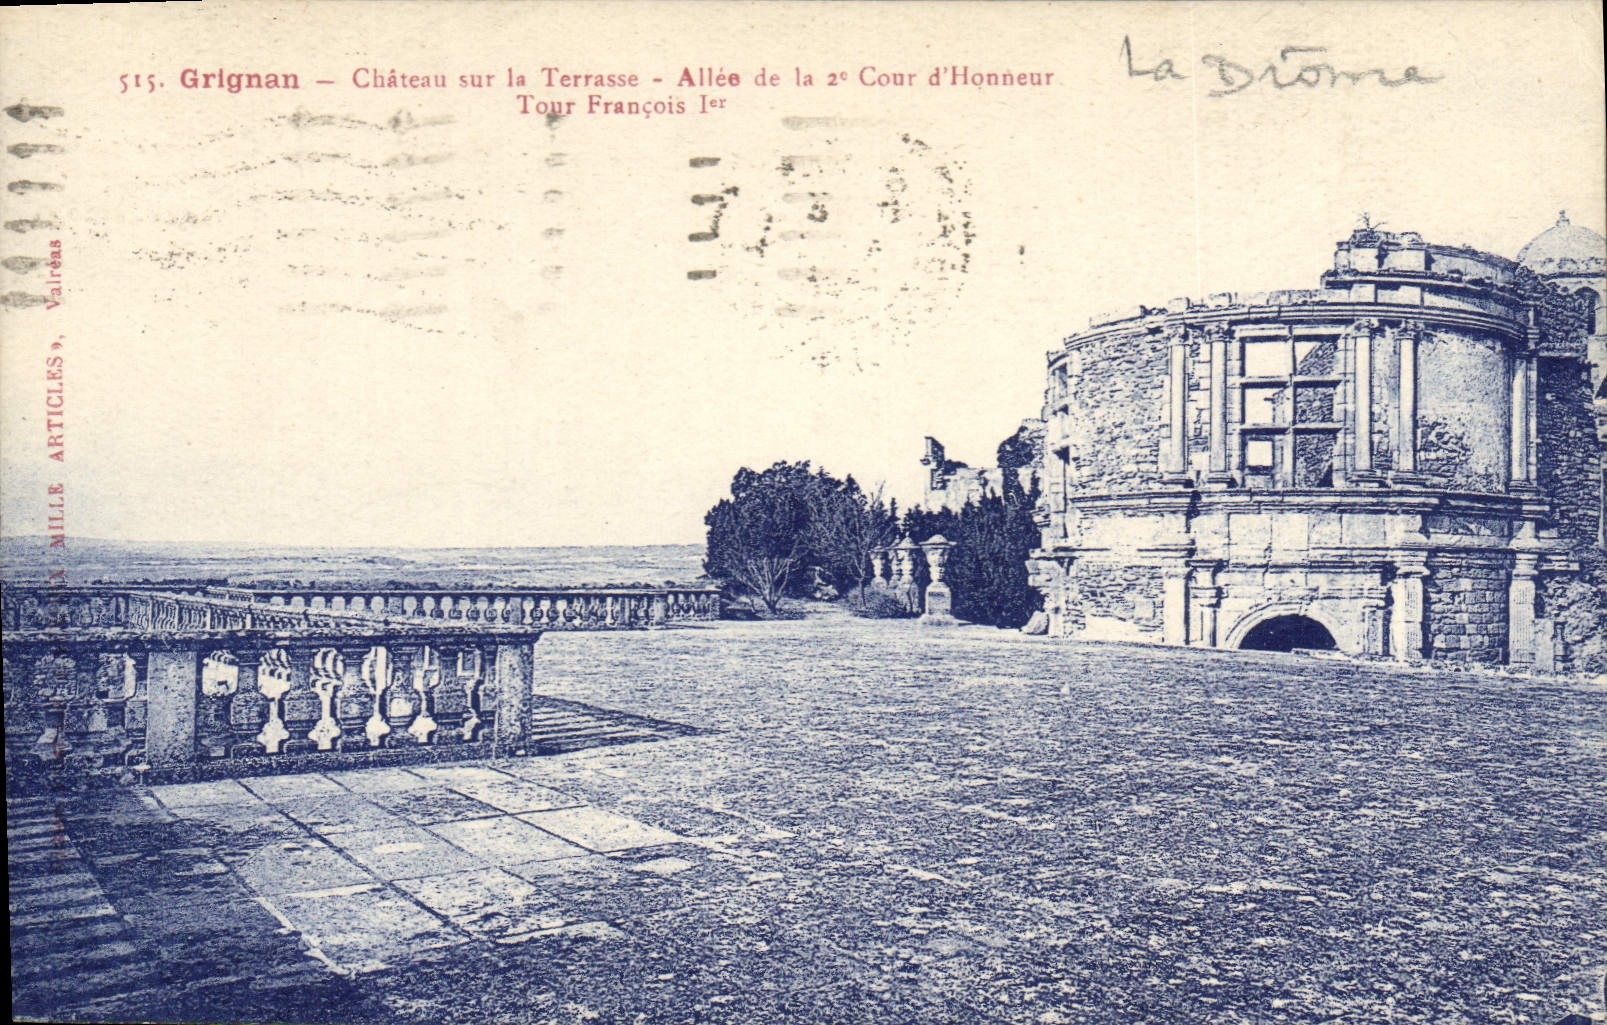 515. Grignan — Château sur la Terrasse - Allée de la 2e Cour d'Honneur
Tour François Ier
La Drôme
MILLE ARTICLES », Valréas